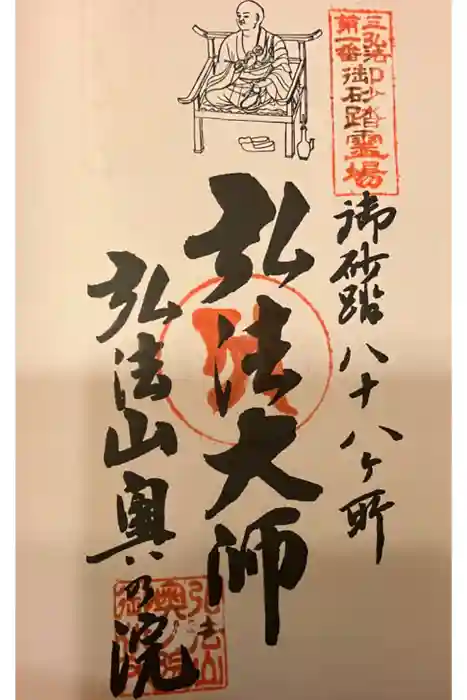 三弘法
第一番
御砂踏霊場
御砂踏八十八ヶ所
弘法大師
弘法山奥の院
弘法山
奥の院